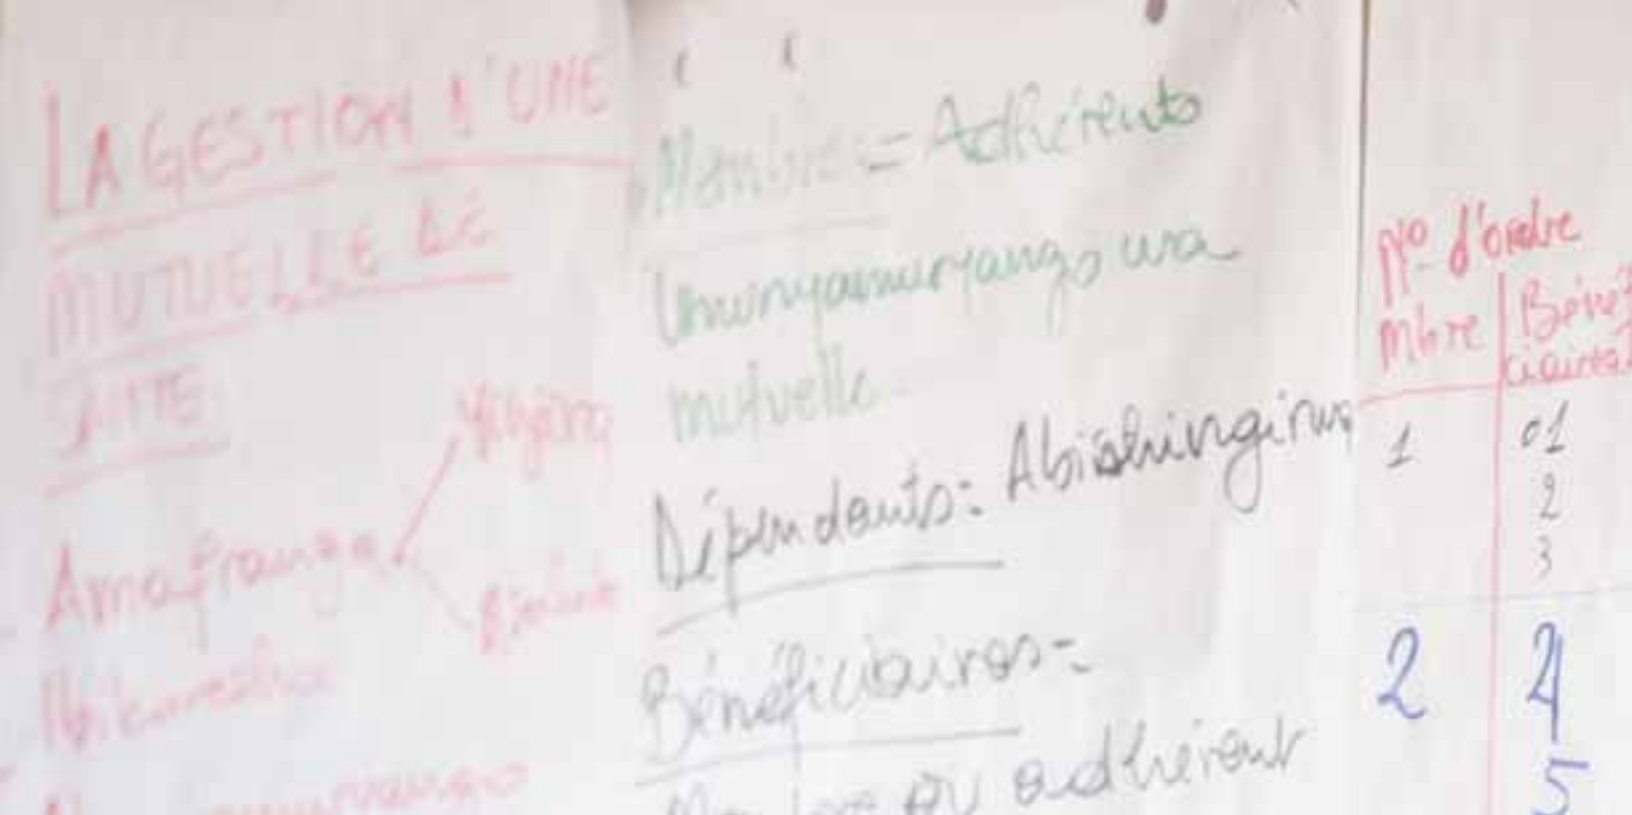 LA GESTION D'UNE
MUTUELLE DE
SANTE
Amafranga
Ibikoresho
Membre = Adhérents
Umunyamuryango wa
mutuelle
Dépendants: Abishingirwa
Bénéficiaires=
Membre ou adhérent
N° d'ordre
Mbre Bénéfi
ciaires
1 01
2
3
2 4
5